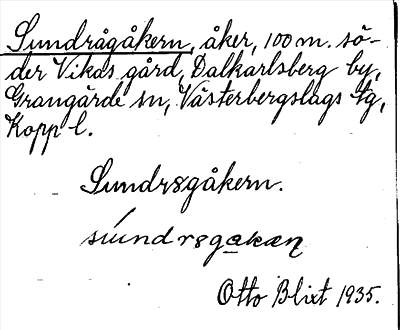 Sundrågåkern, åker, 100 m. sö-
der Vikas gård, Dalkarlsberg by,
Grangärde sn, Västerbergslags tg,
Kopp l.
Sundrsgåkern.
Otto Blixt 1935.